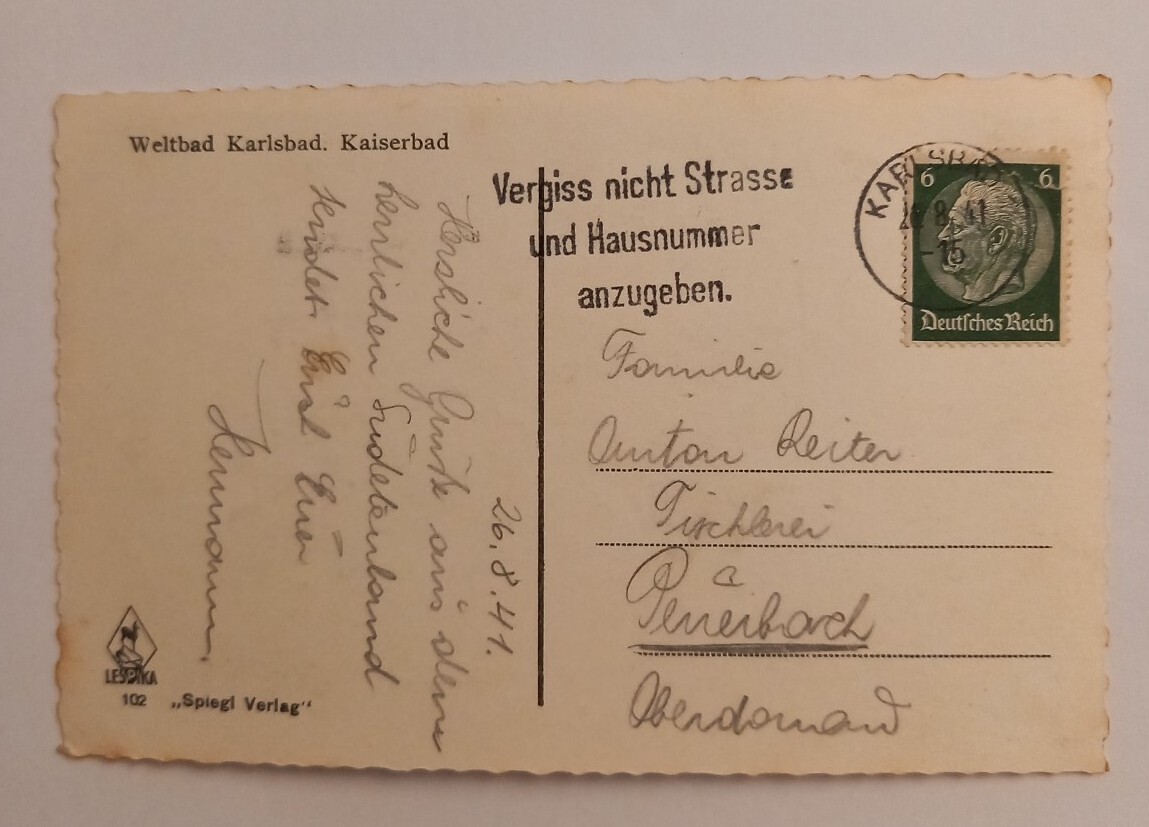 Weltbad Karlsbad. Kaiserbad
Vergiss nicht Strasse
und Hausnummer
anzugeben.
KARLSBAD
26.8.41
-15
6 6
Deutsches Reich
26.8.41.
Herzliche Grüße aus dem
herrlichen Sudetenland
sendet Euch Euer
Hermann.
Familie
Anton Reiter
Tischlerei
Peuerbach
Oberdonau
LESPIKA
102 „Spiegl Verlag“